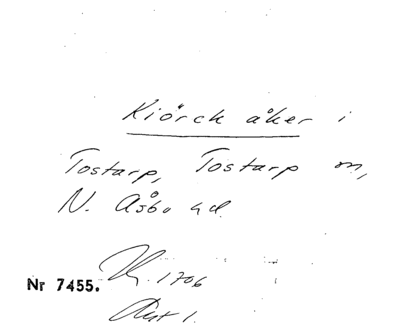 Kiörck åker i
Tostarp, Tostarp sn,
N. Åsbo hd.
Nr 7455. K. 1706
Avs 1.